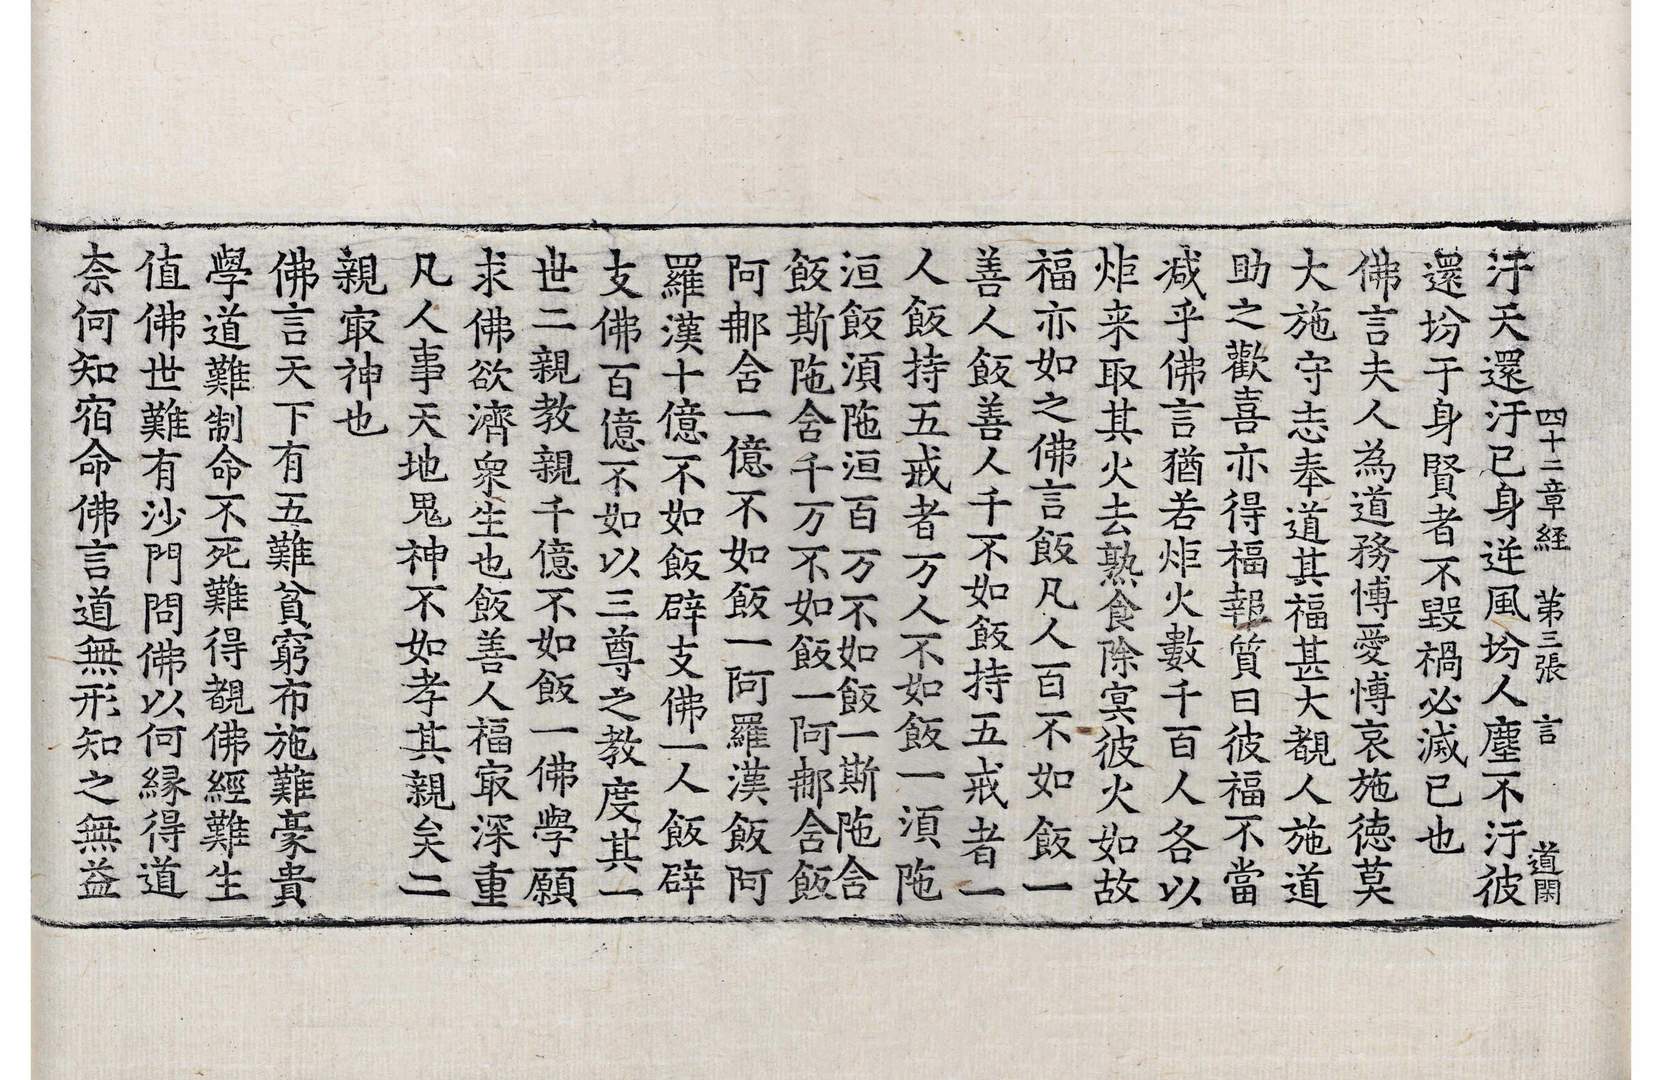 四十二章経　第三張　言　道閑
汙天還汙已身逆風坋人塵不汙彼
還坋于身賢者不毀禍必滅已也
佛言夫人為道務愽愛愽哀施德莫
大施守志奉道其福甚大覩人施道
助之歡喜亦得福報質曰彼福不當
减乎佛言猶若炬火數千百人各以
炬来取其火去熟食除㝠彼火如故
福亦如之佛言飯凡人百不如飯一
善人飯善人千不如飯持五戒者一
人飯持五戒者万人不如飯一湏陁
洹飯湏陁洹百万不如飯一斯陁含
飯斯陁含千万不如飯一阿那含飯
阿那含一億不如飯一阿羅漢飯阿
羅漢十億不如飯辟支佛一人飯辟
支佛百億不如以三尊之教度其一
世二親教親千億不如飯一佛學願
求佛欲濟衆生也飯善人福㝡深重
凡人事天地鬼神不如孝其親矣二
親㝡神也
佛言天下有五難貧窮布施難豪貴
學道難制命不死難得覩佛經難生
值佛世難有沙門問佛以何縁得道
柰何知宿命佛言道無形知之無益